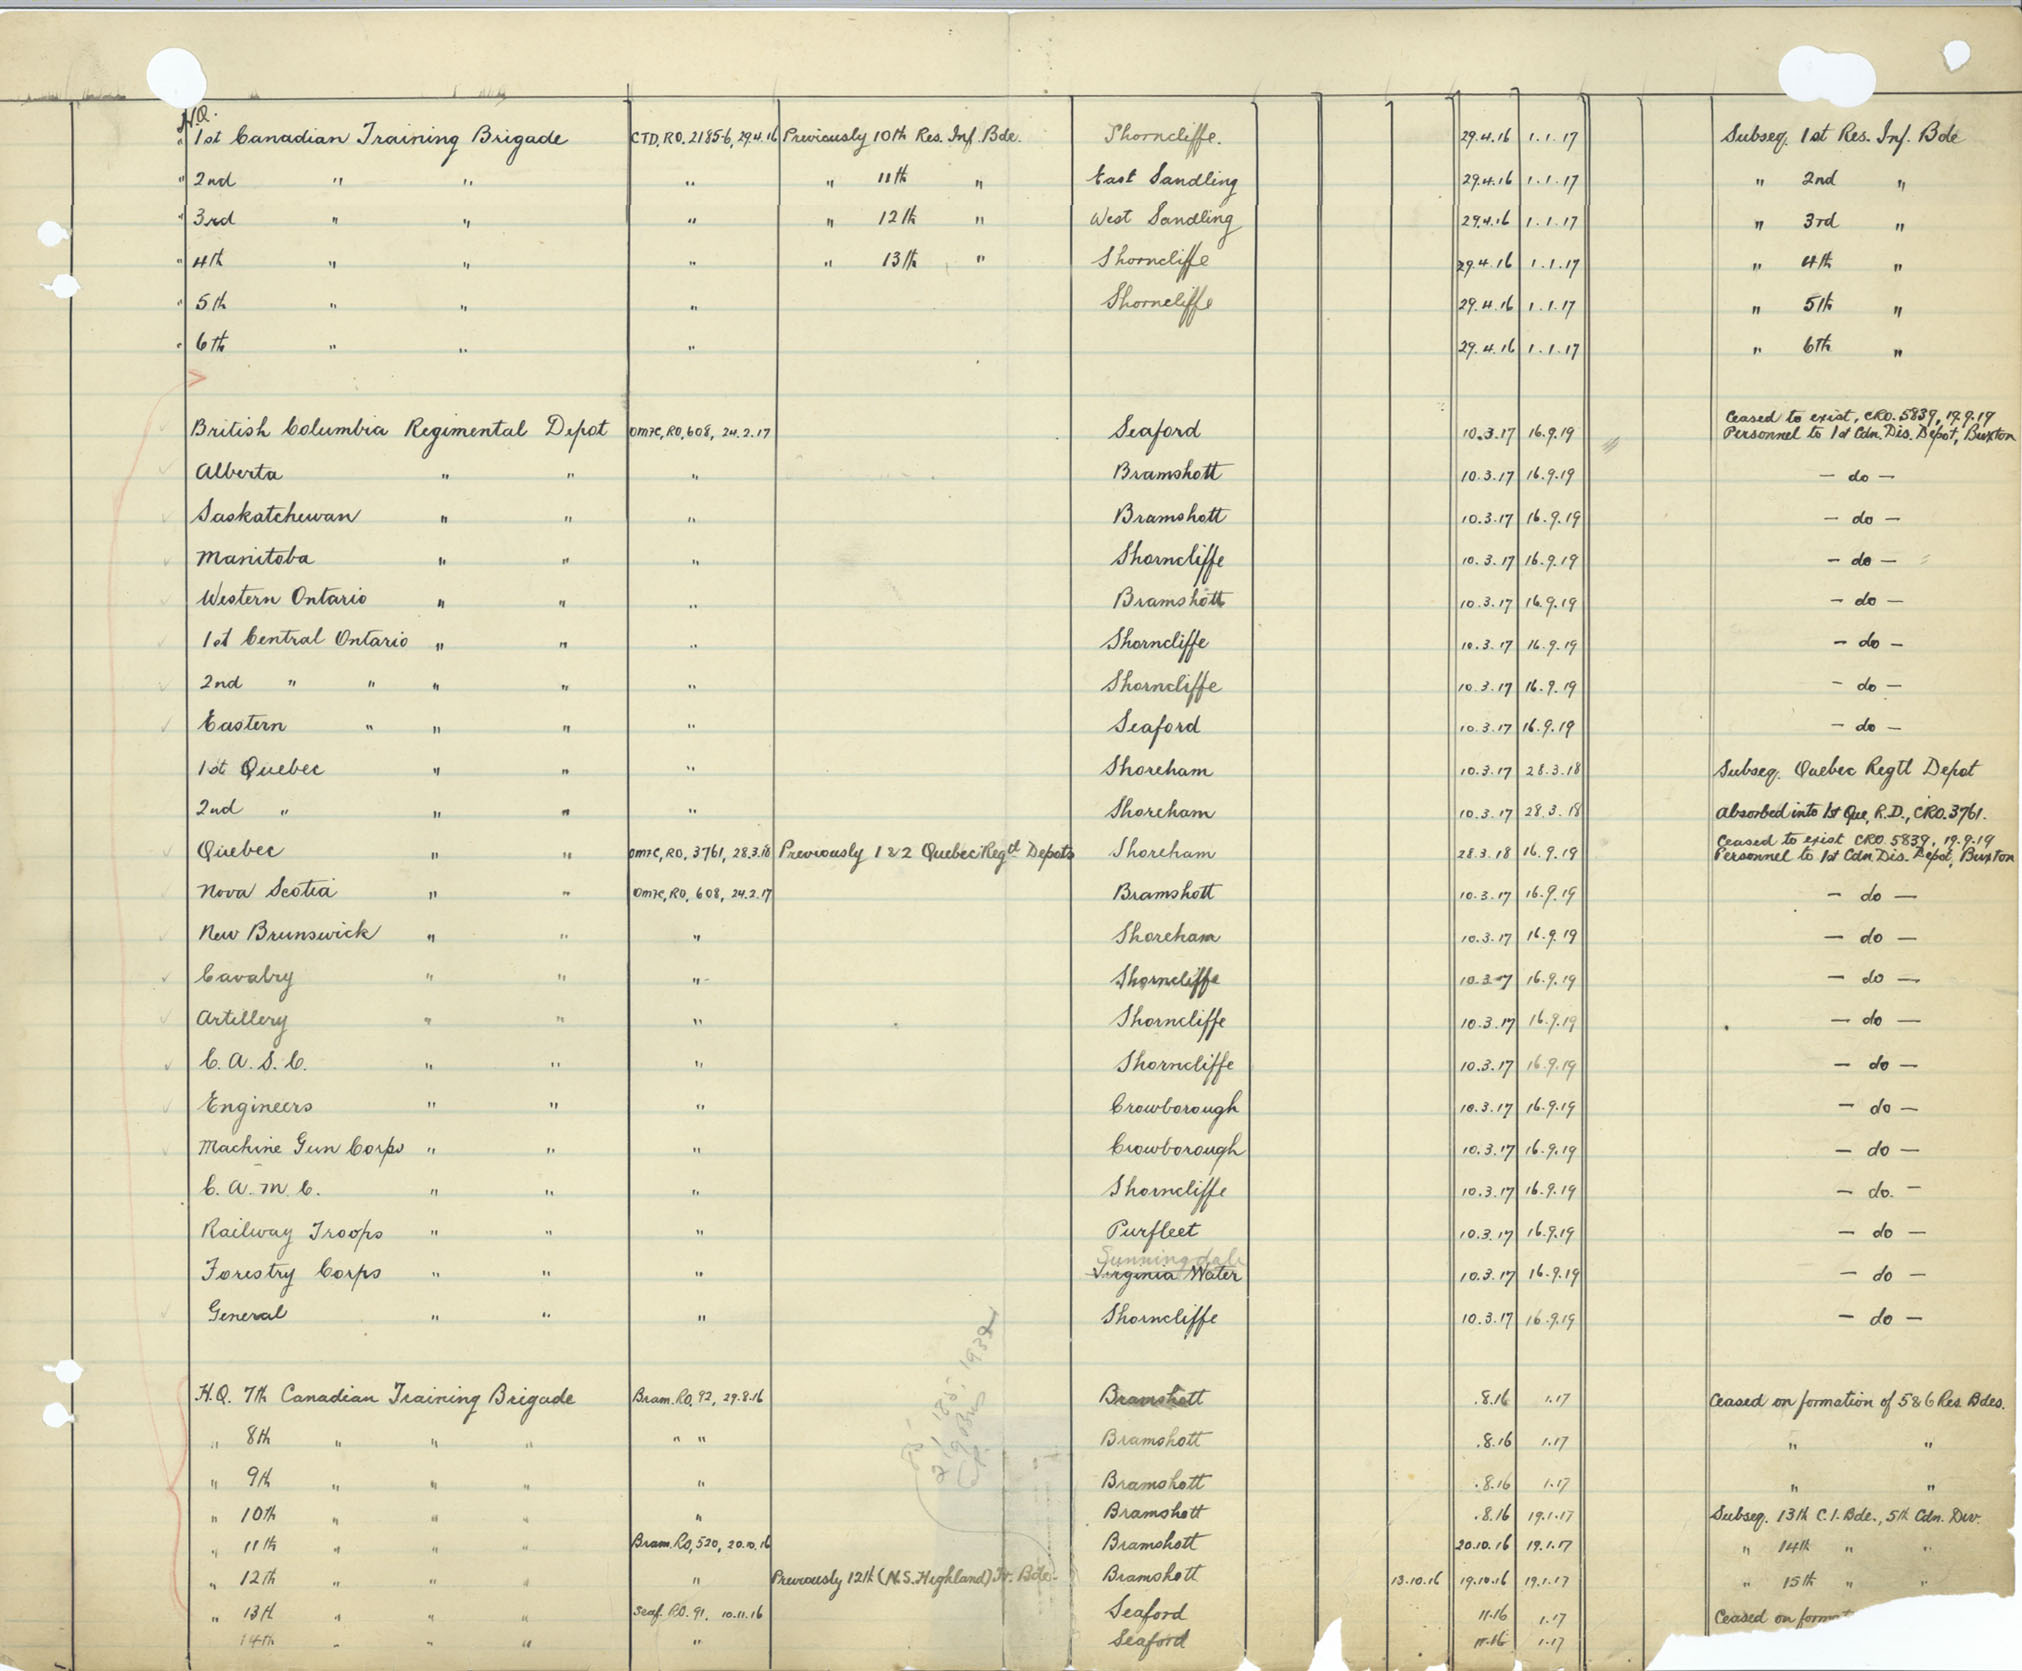 H.Q.
" 1st Canadian Training Brigade CTD, RO. 2185-6, 29.4.16 Previously 10th Res. Inf. Bde. Shorncliffe. 29.4.16 1.1.17 Subseq. 1st Res. Inf. Bde
" 2nd " " " " 11th " East Sandling 29.4.16 1.1.17 " 2nd "
" 3rd " " " " 12th " West Sandling 29.4.16 1.1.17 " 3rd "
" 4th " " " " 13th " Shorncliffe 29.4.16 1.1.17 " 4th "
" 5th " " " Shorncliffe 29.4.16 1.1.17 " 5th "
" 6th " " " 29.4.16 1.1.17 " 6th "
Ceased to exist, CRO. 5839, 19.9.19
British Columbia Regimental Depot OMFC, RO, 608, 24.2.17 Seaford 10.3.17 16.9.19 Personnel to 1st Cdn. Dis. Depot, Buxton
Alberta " " " Bramshott 10.3.17 16.9.19 – do –
Saskatchewan " " " Bramshott 10.3.17 16.9.19 – do –
Manitoba " " " Shorncliffe 10.3.17 16.9.19 – do –
Western Ontario " " " Bramshott 10.3.17 16.9.19 – do –
1st Central Ontario " " " Shorncliffe 10.3.17 16.9.19 – do –
2nd " " " " " Shorncliffe 10.3.17 16.9.19 – do –
Eastern " " " " Seaford 10.3.17 16.9.19 – do –
1st Quebec " " " Shoreham 10.3.17 28.3.18 Subseq. Quebec Regtl Depot
2nd " " " " Shoreham 10.3.17 28.3.18 Absorbed into 1st Que, R.D., CRO. 3761.
Ceased to exist CRO. 5839, 19.9.19
Quebec " " OMFC, RO, 3761, 28.3.18 Previously 1 & 2 Quebec Regtl Depots Shoreham 28.3.18 16.9.19 Personnel to 1st Cdn. Dis. Depot, Buxton
Nova Scotia " " OMFC, RO, 608, 24.2.17 Bramshott 10.3.17 16.9.19 – do –
New Brunswick " " " Shoreham 10.3.17 16.9.19 – do –
Cavalry " " " Shorncliffe 10.3.17 16.9.19 – do –
Artillery " " " Shorncliffe 10.3.17 16.9.19 – do –
C. A. S. C. " " " Shorncliffe 10.3.17 16.9.19 – do –
Engineers " " " Crowborough 10.3.17 16.9.19 – do –
Machine Gun Corps " " " Crowborough 10.3.17 16.9.19 – do –
C. A. M. C. " " " Shorncliffe 10.3.17 16.9.19 – do. –
Railway Troops " " " Purfleet 10.3.17 16.9.19 – do –
Sunningdale
Forestry Corps " " " Virginia Water 10.3.17 16.9.19 – do –
General " " " Shorncliffe 10.3.17 16.9.19 – do –
1932
H.Q. 7th Canadian Training Brigade Bram. RO, 92, 29.8.16 Bramshott .8.16 1.17 Ceased on formation of 5 & 6 Res. Bdes.
" 8th " " " " " Bramshott .8.16 1.17 " "
" 9th " " " " Bramshott .8.16 1.17 " "
" 10th " " " " Bramshott .8.16 19.1.17 Subseq. 13th C.I. Bde., 5th Cdn. Div.
" 11th " " " Bram. RO, 520, 20.10.16 Bramshott 20.10.16 19.1.17 " 14th " "
" 12th " " " " Previously 12th (N.S. Highland) Tr. Bde. Bramshott 13.10.16 19.10.16 19.1.17 " 15th " "
" 13th " " " Seaf. RO. 91, 10.11.16 Seaford 11.16 1.17 Ceased on format
14th " " " " Seaford 11.16 1.17